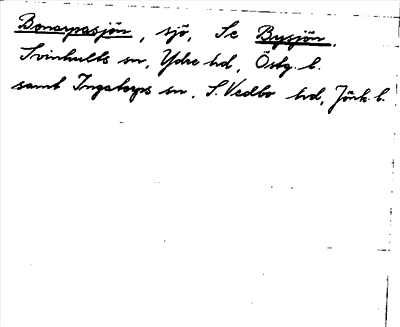 Bonarpasjön, sjö, Se Bysjön.
Svinhults sn, Ydre hd, Östg. l.
samt Ingatorps sn, S. Vedbo hd, Jönk. l.